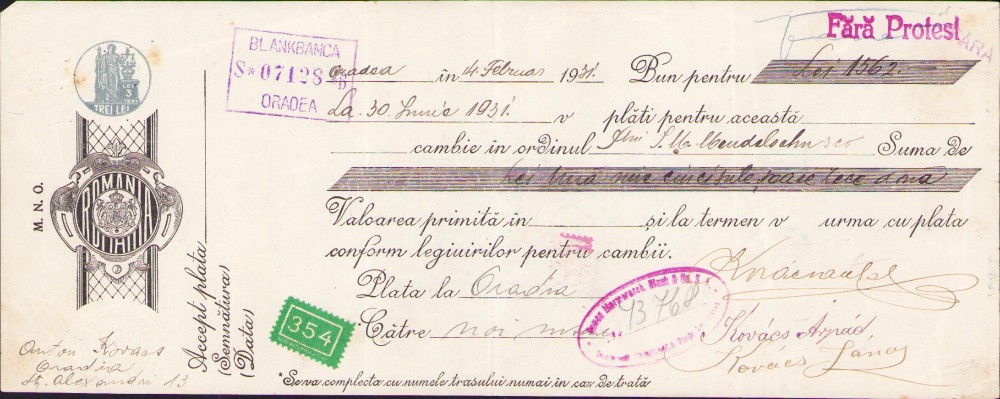 Fără Protest
BLANKBANCA
S*07128
ORADEA
Oradea în 14 Februar 1931. Bun pentru Lei 1562.
La 30 Iunie 1931. v plăti pentru această
cambie în ordinul S. M. Mendelsohn Suma de
Lei Una mie cinci sute
Valoarea primită în și la termen v urma cu plata
conform legiuirilor pentru cambii.
Plata la Oradia
Către noi
Kovács Arpád
Kovacs János
*Se va complecta cu numele trasului numai în caz de trată
LEI 3
TREI LEI
M. N. O.
ROMANIA
Accept plata
(Semnătura)
(Data)
354
43768
Anton Kovacs
Oradia
Alexandri 13